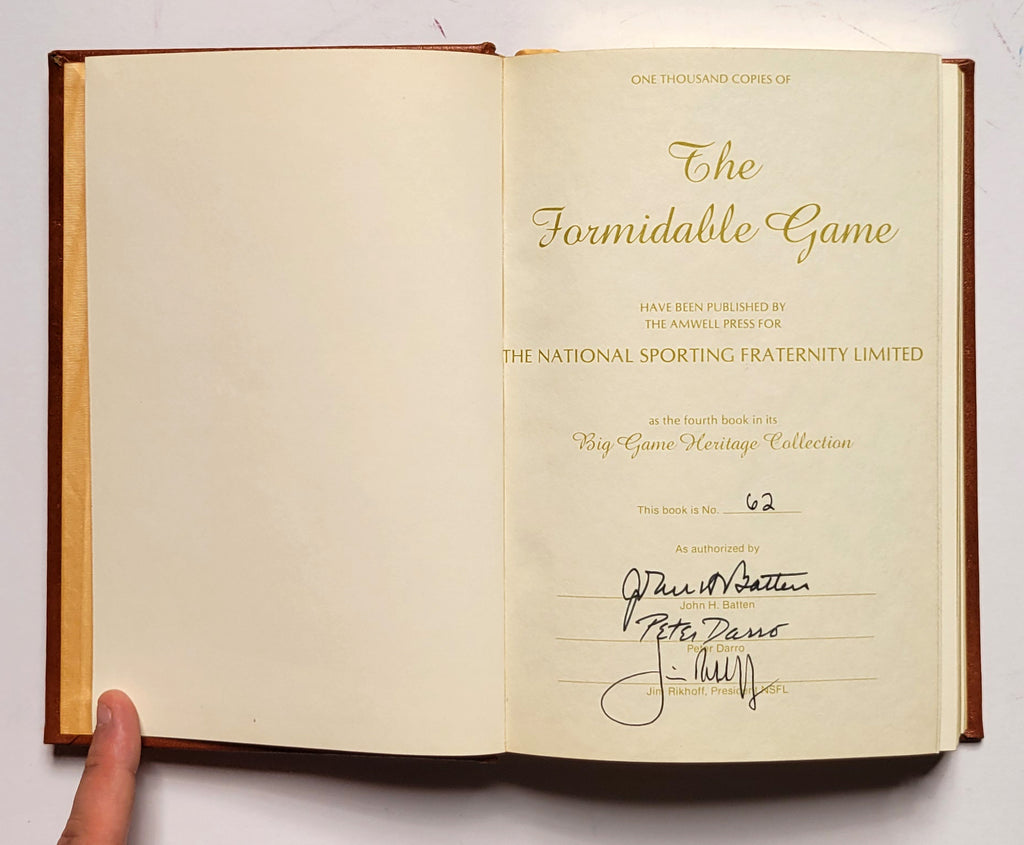 ONE THOUSAND COPIES OF
The
Formidable Game
HAVE BEEN PUBLISHED BY
THE AMWELL PRESS FOR
THE NATIONAL SPORTING FRATERNITY LIMITED
as the fourth book in its
Big Game Heritage Collection
This book is No. 62
As authorized by
John H Batten
John H. Batten
Peter Darro
Peter Darro
Jim Rikhoff
Jim Rikhoff, President NSFL